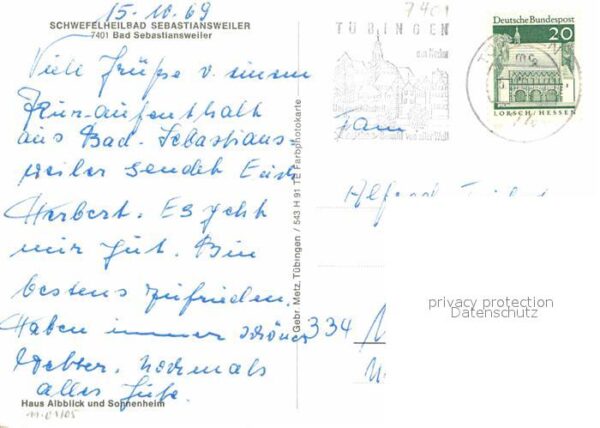 15.10.69
SCHWEFELHEILBAD SEBASTIANSWEILER
7401 Bad Sebastiansweiler
Viele Grüße v. einem
Kur-aufenthalt
aus Bad-Sebastians-
weiler sendet Euch
Herbert. Es geht
mir gut. Bin
bestens zufrieden.
Haben immer schönes
Wetter. Nochmals
alles Gute.
Haus Albblick und Sonnenheim
11-01/05
Gebr. Metz, Tübingen / 543 H 91 TE Farbphotokarte
7401
TÜBINGEN
am Neckar
Deutsche Bundespost
20
LORSCH/HESSEN
Fam.
Alfons
334
privacy protection
Datenschutz